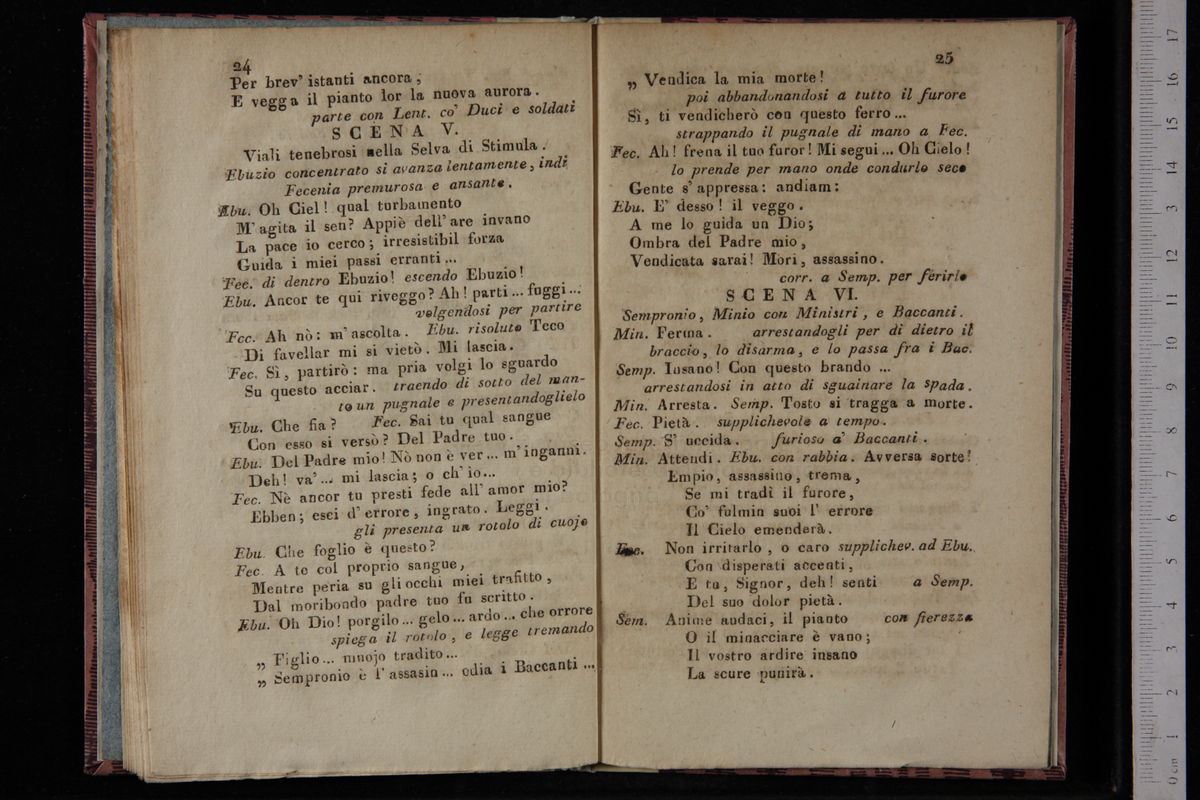 24
Per brev' istanti ancora,
E vegga il pianto lor la nuova aurora.
parte con Lent. co' Duci e soldati
SCENA V.
Viali tenebrosi nella Selva di Stimula.
Ebuzio concentrato si avanza lentamente, indi
Fecenia premurosa e ansante.
Ebu. Oh Ciel! qual turbamento
M' agita il sen? Appiè dell' are invano
La pace io cerco; irresistibil forza
Guida i miei passi erranti...
Fec. di dentro Ebuzio! escendo Ebuzio!
Ebu. Ancor te qui riveggo? Ah! parti... fuggi...
volgendosi per partire
Fec. Ah nò: m' ascolta. Ebu. risoluto Teco
Di favellar mi si vietò. Mi lascia.
Fec. Sì, partirò: ma pria volgi lo sguardo
Su questo acciar. traendo di sotto del man-
to un pugnale e presentandoglielo
Ebu. Che fia? Fec. Sai tu qual sangue
Con esso si versò? Del Padre tuo.
Ebu. Del Padre mio! Nò non è ver... m' inganni.
Deh! va'... mi lascia; o ch' io...
Fec. Nè ancor tu presti fede all' amor mio?
Ebben; esci d' errore, ingrato. Leggi.
gli presenta un rotolo di cuojo
Ebu. Che foglio è questo?
Fec. A te col proprio sangue,
Mentre peria su gli occhi miei trafitto,
Dal moribondo padre tuo fu scritto.
Ebu. Oh Dio! porgilo... gelo... ardo... che orrore
spiega il rotolo, e legge tremando
„ Figlio... muojo tradito...
„ Sempronio è l' assasin... odia i Baccanti...
25
„ Vendica la mia morte!
poi abbandonandosi a tutto il furore
Sì, ti vendicherò con questo ferro...
strappando il pugnale di mano a Fec.
Fec. Ah! frena il tuo furor! Mi segui... Oh Cielo!
lo prende per mano onde condurlo seco
Gente s' appressa: andiam:
Ebu. E' desso! il veggo.
A me lo guida un Dio;
Ombra del Padre mio,
Vendicata sarai! Mori, assassino.
corr. a Semp. per ferirlo
SCENA VI.
Sempronio, Minio con Ministri, e Baccanti.
Min. Ferma. arrestandogli per di dietro il
braccio, lo disarma, e lo passa fra i Bac.
Semp. Insano! Con questo brando ...
arrestandosi in atto di sguainare la spada.
Min. Arresta. Semp. Tosto si tragga a morte.
Fec. Pietà. supplichevole a tempo.
Semp. S' uccida. furioso a' Baccanti.
Min. Attendi. Ebu. con rabbia. Avversa sorte!
Empio, assassino, trema,
Se mi tradì il furore,
Co' fulmin suoi l' errore
Il Cielo emenderà.
Fec. Non irritarlo, o caro supplichev. ad Ebu.
Con disperati accenti,
E tu, Signor, deh! senti a Semp.
Del suo dolor pietà.
Sem. Anime audaci, il pianto con fierezza
O il minacciare è vano;
Il vostro ardire insano
La scure punirà.
0 cm 1 2 3 4 5 6 7 8 9 10 11 12 13 14 15 16 17